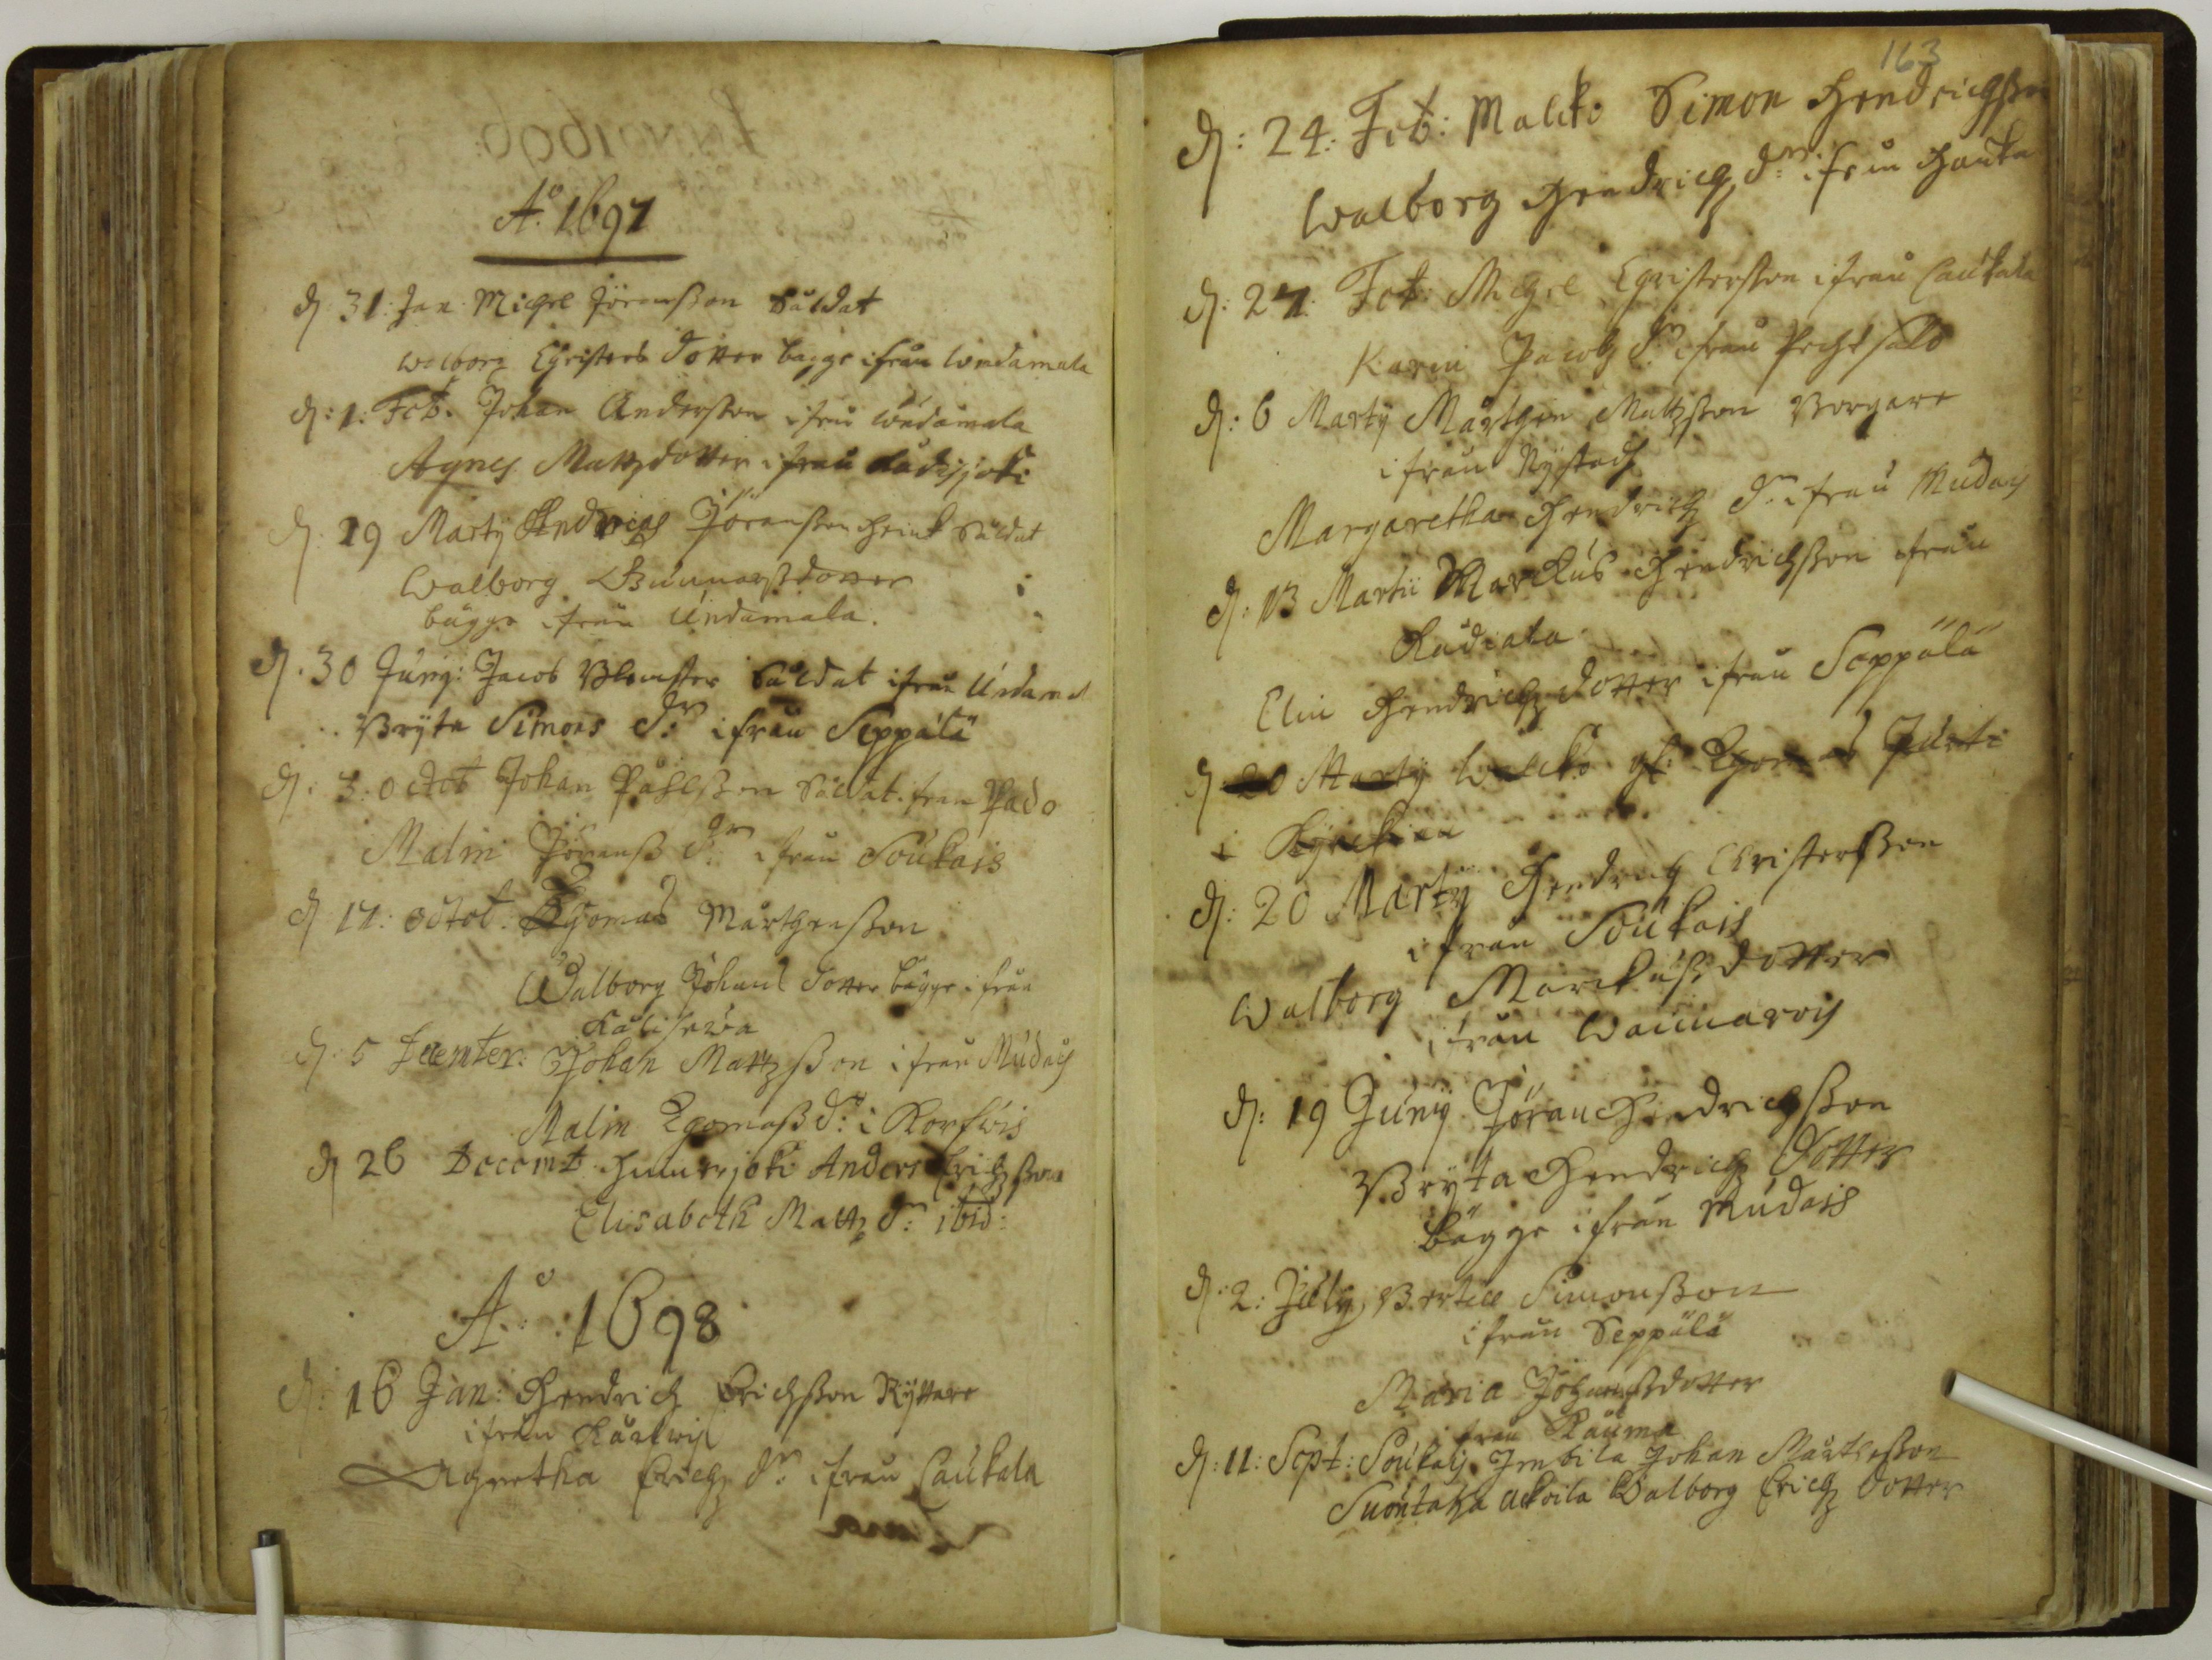 Aº 1697
d: 31: Jan: Michel Jöransson Såldat
Walborg Christers dotter bägge ifrån Undamala
d: 1: Feb: Johan Andersson ifrån Undamala
Agnes Mattzdotter ifrån
d: 19 Martij Andreas Jöransson Såldat
Walborg Gunnarssdotter
bägge ifrån Undamala.
d. 30 Junij: Jacob Blomster Såldat ifrån Undamal
Bryta Simons dr ifrån Seppälä
d: 3. Octob Johan Påhlsson Såldat ifrån Pado
Malin Jöranss dr ifrån Soukais
d 17: Octob: Thomas Mårthensson
Walborg Johans dotter bägge ifrån
Kalisewa
d: 5 Decemter: Johan Mattzsson ifrån Mudais
Malin Thomass dr i Korfwis
d 26 Decemb: Anders Erichsson
Elisabeth Mattz dr: ibid:
Aº: 1698
d: 16 Jan: Hendrich Erichsson Ryttare
ifrån
Agnetha Erichz dr ifrån Caukala
163
d: 24: Feb: Simon Hendrichsson
Walborg Hendrichz dr ifrån Hauka
d: 27: Feb: Michel Christersson ifrån Caukala
Karin Jacobz dr ifrån
d: 6 Martij Mårthen Mattzsson Borgare
ifrån Nystadh
Margaretha Hendrichz dr ifrån Mudais
d: 13 Martii Marckus Hendrichsson ifrån
Elin Hendrichz dotter ifrån Seppälä
d 20 Martij
i Kyrckian
d: 20 Martij Hendrich Christersson
ifrån Soukais
Walborg Marckuss dotter
ifrån
d: 19 Junij Jöran Hendrichsson
Bryta Hendrichz dotter
bägge ifrån Mudais
d: 2: July, Bertill Simonsson
ifrån Seppälä
Maria Johanssdotter
ifrån Rauma
d: 11: Sept: Soukais Johan Mårthesson
Walborg Erichz dotter